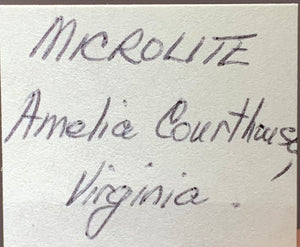 MICROLITE
Amelia Courthouse,
Virginia.